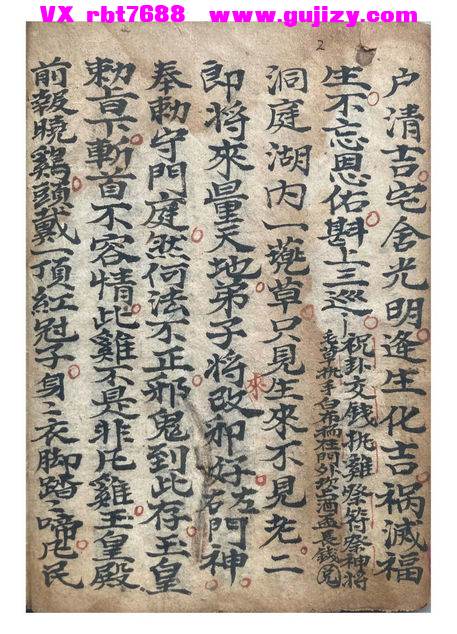 VX rbt7688 www.gujizy.com
2
户清吉宅舍光明逢生化吉祸滅福
生不忘恩佑斟上三巡
祝卦交钱挑雞祭符祭神将
洞庭湖内一蔸草只見生來不見老二
即将來量天地弟子将改
來
好左右門神
奉勅守門庭然何法不正邪鬼到此存玉皇
勅旨下斬首不容情此雞不是非凡雞玉皇殿
前報曉鷄頭戴一頂紅冠子身
衣脚踏
啼凡民